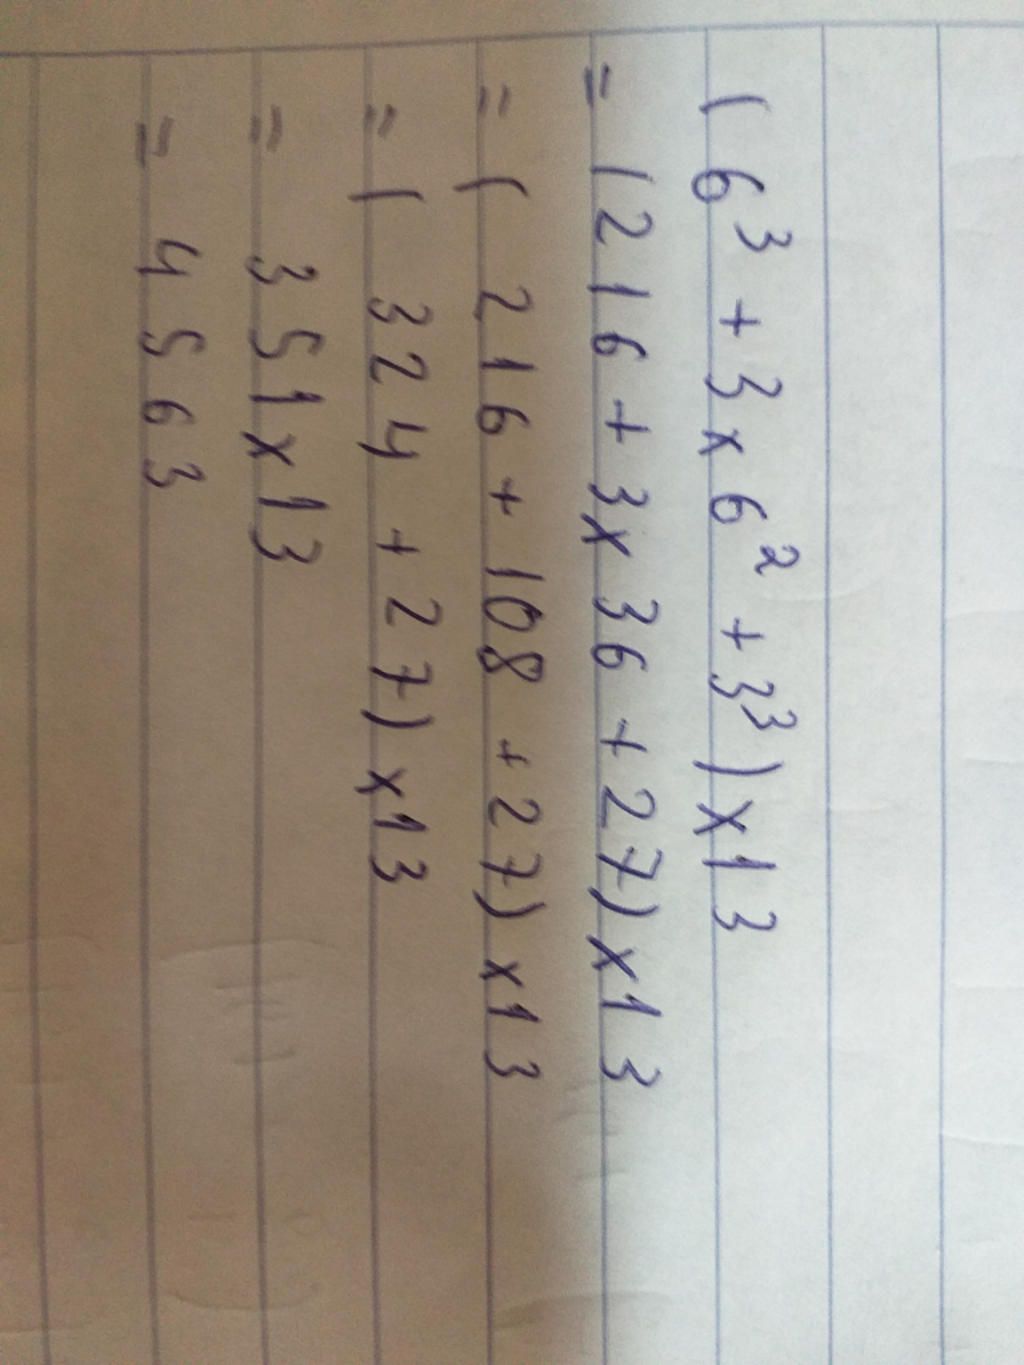 (6³ + 3 x 6² + 3³) x 13
= (216 + 3 x 36 + 27) x 13
= ( 216 + 108 + 27) x 13
= ( 324 + 27) x 13
= 351 x 13
= 4563